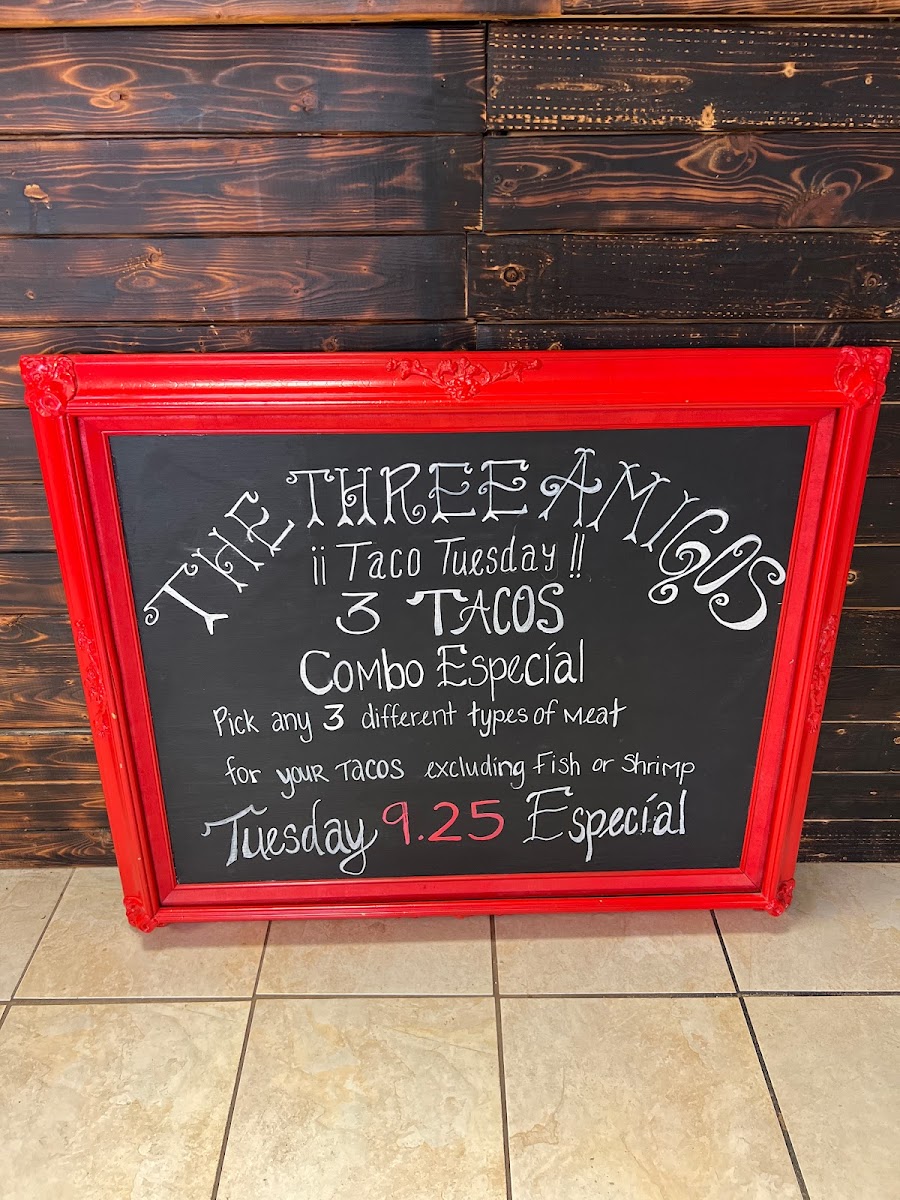 THE THREE AMIGOS
¡¡ Taco Tuesday !!
3 TACOS
Combo Especíal
Pick any 3 different types of Meat
for your Tacos excluding Fish or Shrimp
Tuesday 9.25 Especíal